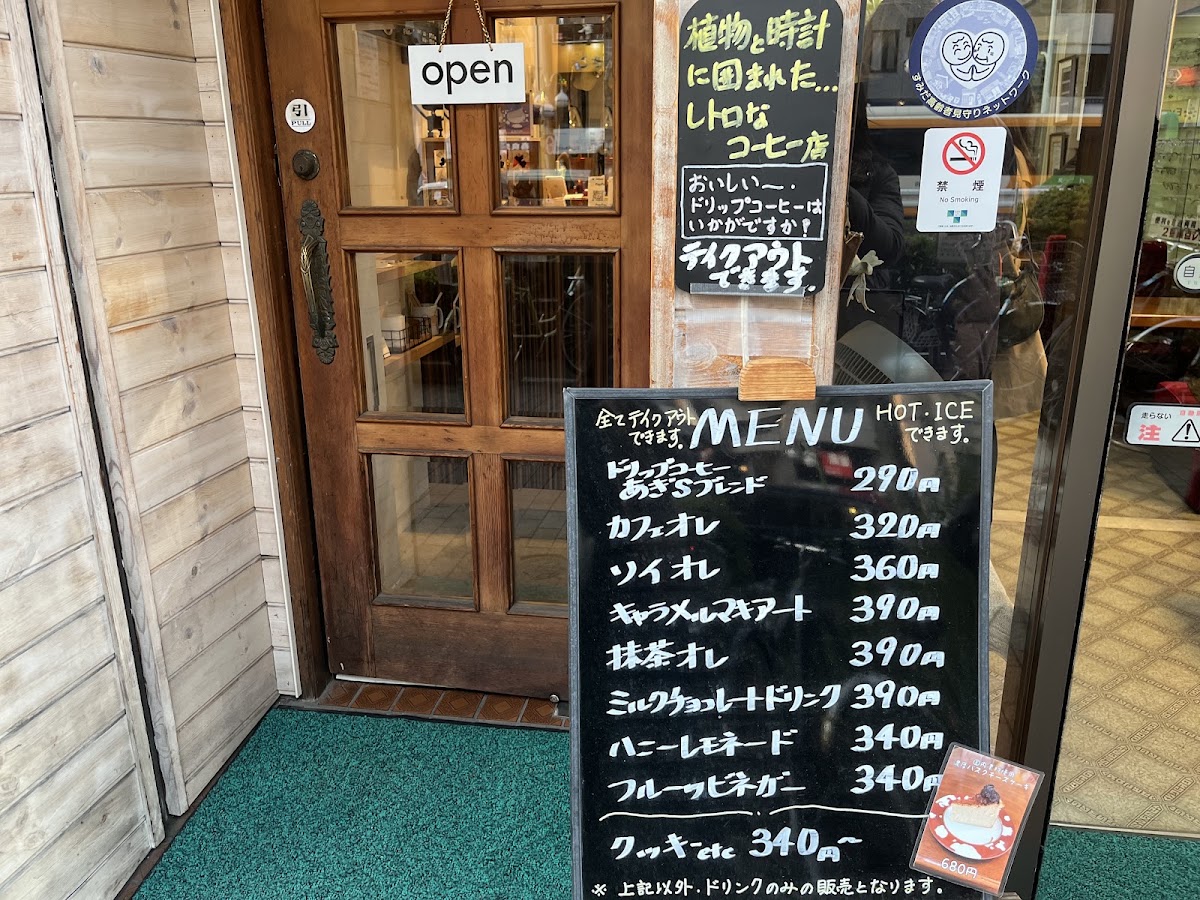 open
引
PULL
植物と時計
に囲まれた…
レトロな
コーヒー店
おいしい〜・
ドリップコーヒーは
いかがですか！
テイクアウト
できます。
すみだ高齢者見守りネットワーク
禁煙
No Smoking
自
走らない
注
全てテイクアウト
できます。
MENU
HOT・ICE
できます。
ドリップコーヒー
あぎSブレンド 290円
カフェオレ 320円
ソイオレ 360円
キャラメルマキアート 390円
抹茶オレ 390円
ミルクチョコレートドリンク 390円
ハニーレモネード 340円
フルーツビネガー 340円
クッキーetc 340円〜
※ 上記以外・ドリンクのみの販売となります。
バスクチーズケーキ
680円